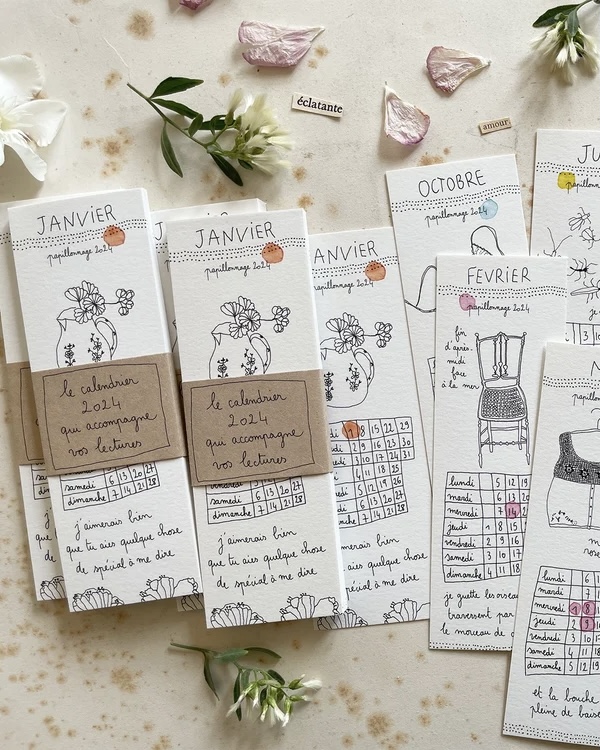 éclatante
amour
JANVIER
papillonnage 2024
le calendrier
2024
qui accompagne
vos lectures
samedi 6 13 20 27
dimanche 7 14 21 28
j'aimerais bien
que tu aies quelque chose
de spécial à me dire
JANVIER
papillonnage 2024
le calendrier
2024
qui accompagne
vos lectures
samedi 6 13 20 27
dimanche 7 14 21 28
j'aimerais bien
que tu aies quelque chose
de spécial à me dire
ANVIER
papillonnage 2024
di 1 8 15 22 29
2 9 16 23 30
3 10 17 24 31
4 11 18 25
5 12 19 26
6 13 20 27
7 14 21 28
bien
quelque chose
à me dire
OCTOBRE
papillonnage 2024
FEVRIER
papillonnage 2024
fin
d'après-
midi
face
à la mer
lundi 5 12 19
mardi 6 13 20
mercredi 7 14
jeudi 1 8 15
vendredi 2 9 16
samedi 3 10 17
dimanche 4 11 18
je guette les oiseau
traversent par
le morceau de c
JU
papillonn
je
3 10
lundi 6
mardi 7
mercredi 1 8
jeudi 2 9
vendredi 3 10
samedi 4 11
dimanche 5 12 19
et la bouche
pleine de baise